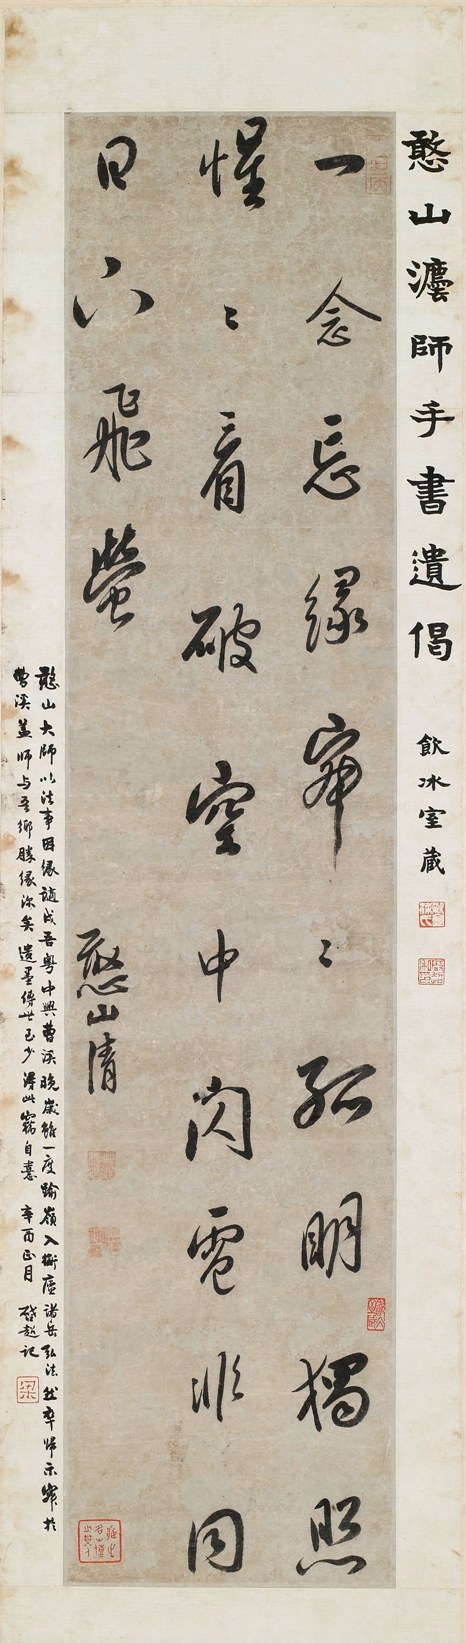 憨山灋師手書遺偈 飲冰室藏
一念忘緣寂〻孤明獨照
惺〻看破空中閃電非同
日下飛螢
憨山清
憨山大師以法事因緣謫戍吾粵中興曹溪晚歲雖一度踰嶺入衡廬諸岳弘法然卒歸示寂於
曹溪蓋師与吾鄉勝緣深矣遺墨傳世已少得此竊自憙 辛酉正月 啟超記